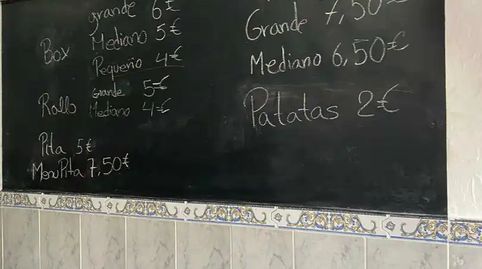 grande 6€
Box Mediano 5€
Pequeño 4€
Rollo Grande 5€
Mediano 4€
Pita 5€
Menu Pita 7,50€
Grande 7,50€
Mediano 6,50€
Patatas 2€